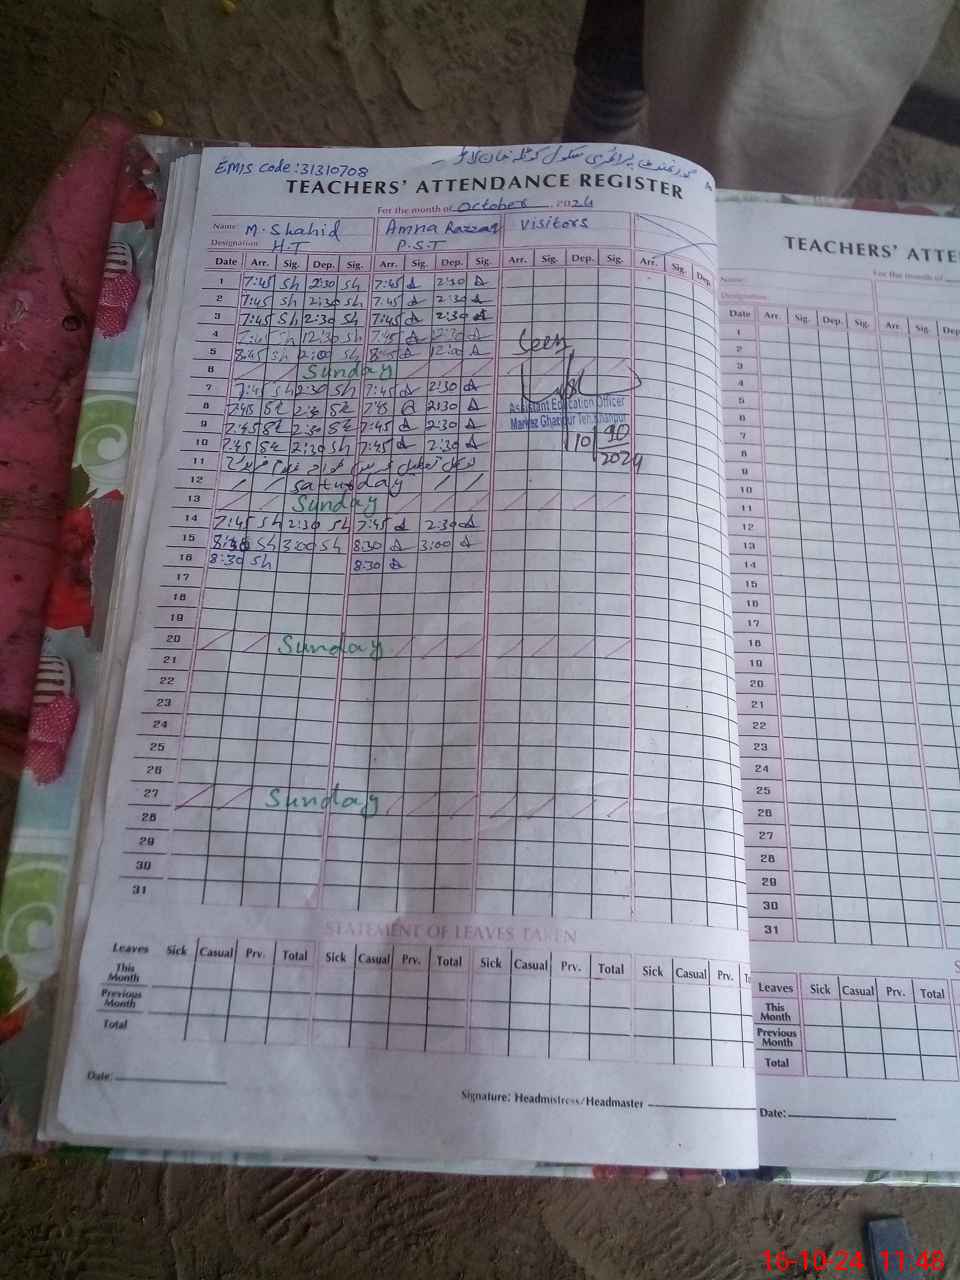 EMIS code : 31310708
گورنمنٹ پرائمری سکول کوٹلہ خان لاڑ
TEACHERS' ATTENDANCE REGISTER
For the month of October 2024
Name M. Shahid Amna Razzaq Visitors
Designation H.T P.S.T
Date Arr. Sig. Dep. Sig. Arr. Sig. Dep. Sig. Arr. Sig. Dep. Sig. Arr. Sig. Dep.
1 7:45 Sh 2:30 Sh 7:45 2:30
2 7:45 Sh 2:30 Sh 7:45 2:30
3 7:45 Sh 2:30 Sh 7:45 2:30
4 7:45 Sh 12:30 Sh 7:45 12:30
5 8:45 Sh 2:00 Sh 8:45 12:00
6 Sunday
7 7:45 Sh 2:30 Sh 7:45 2:30
8 7:45 2:30 7:45 2:30
9 7:45 2:30 7:45 2:30
10 7:45 2:30 Sh 7:45 2:30
11
12 Saturday
13 Sunday
14 7:45 Sh 2:30 Sh 7:45 2:30
15 8:30 Sh 3:00 Sh 8:30 3:00
16 8:30 Sh 8:30
17
18
19
20 Sunday
21
22
23
24
25
26
27 Sunday
28
29
30
31
Seen
Assistant Education Officer
Markaz Ghazipur Teh. Khanpur
10/10/2024
STATEMENT OF LEAVES TAKEN
Leaves Sick Casual Prv. Total Sick Casual Prv. Total Sick Casual Prv. Total Sick Casual Prv.
This Month
Previous Month
Total
Date:
Signature: Headmistress/Headmaster
TEACHERS' ATTE
For the month of
Name:
Designation
Date Arr. Sig. Dep. Sig. Arr. Sig. Dep.
1
2
3
4
5
6
7
8
9
10
11
12
13
14
15
16
17
18
19
20
21
22
23
24
25
26
27
28
29
30
31
Leaves Sick Casual Prv. Total
This Month
Previous Month
Total
Date:
16-10-24 11:48